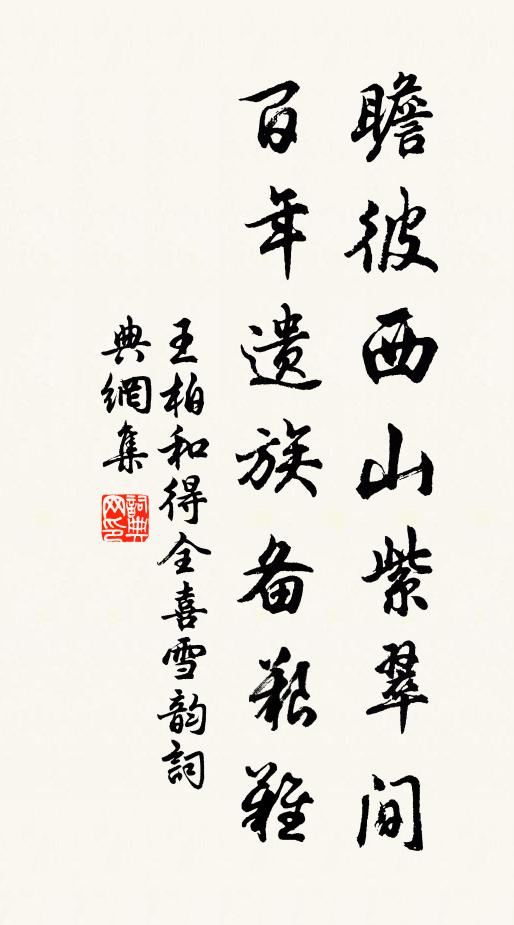 瞻彼西山紫翠间
百年遗族备艰难
王柏和得全喜雪韵詞
典網集
詞典网印